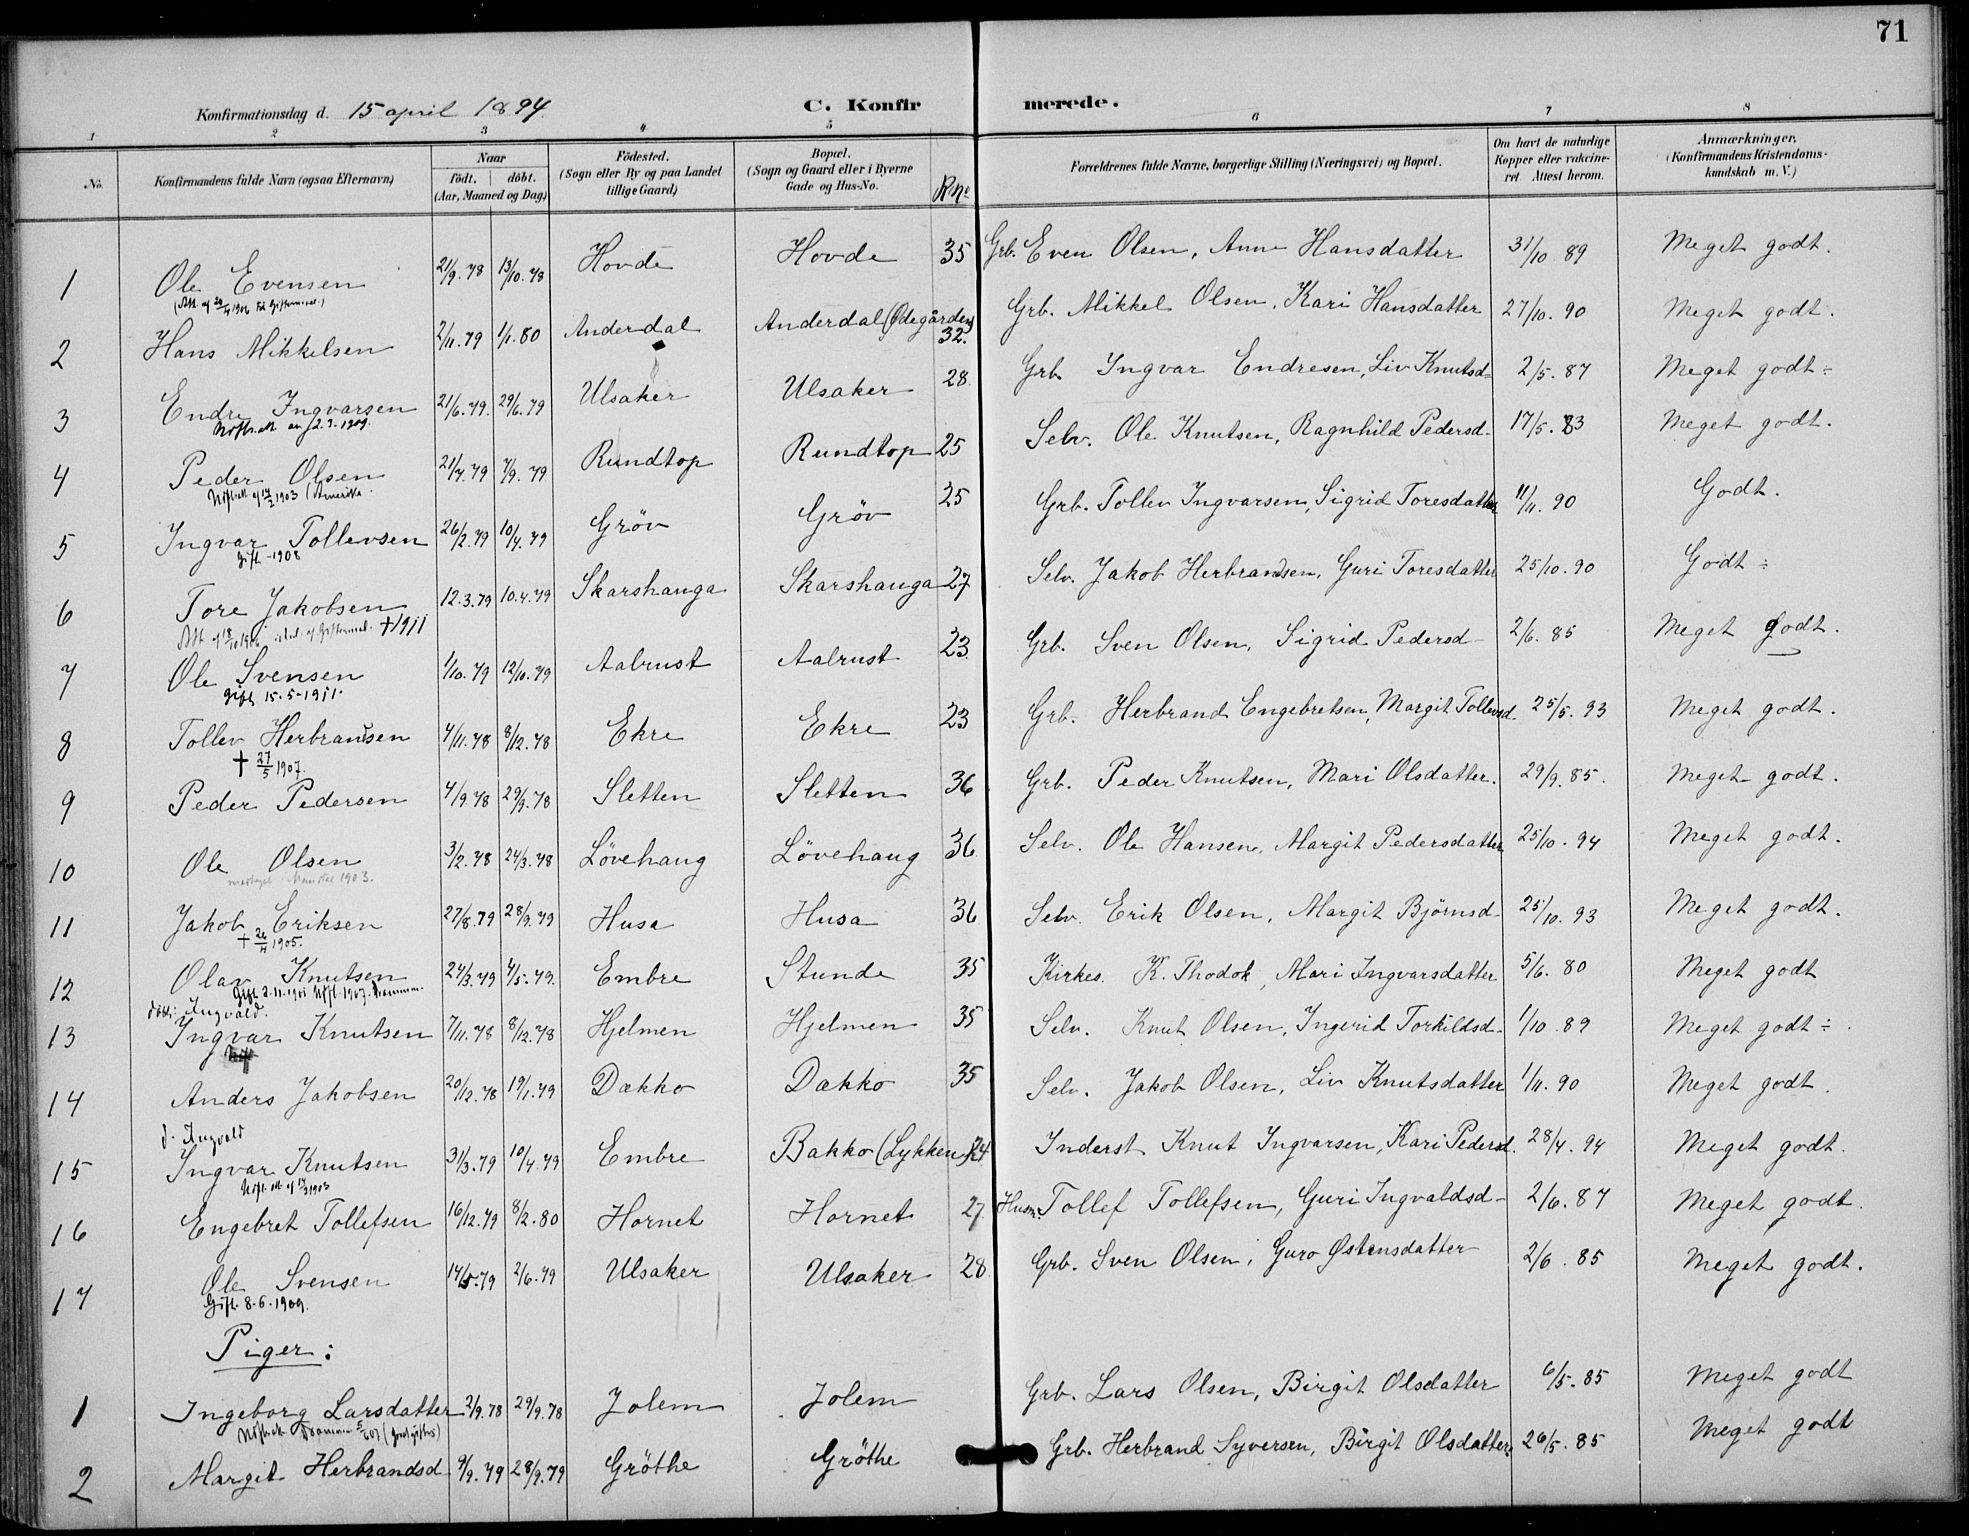 71
Konfirmationsdag d. 15 april 1894. C. Konfirmerede.
1 2 3 4 5 6 7 8
No. Konfirmandens fulde Navn (ogsaa Efternavn) Naar Födt. döbt. (Aar, Maaned og Dag) Födested. (Sogn eller By og paa Landet tillige Gaard) Bopæl. (Sogn og Gaard eller i Byerne Gade og Hus-No. R.No. Forældrenes fulde Navne, borgerlige Stilling (Næringsvei) og Bopæl. Om havt de naturlige Kopper eller vakcineret. Attest herom. Anmærkninger. (Konfirmandens Kristendomskundskab m. V.)
1 Ole Evensen 21/9.78 13/10.78 Hovde Hovde 35 Grb. Even Olsen, Anne Hansdatter 31/10 89 Meget godt.
2 Hans Mikkelsen 2/11.79 1/1.80 Anderdal Anderdal (Ødegården) 32. Grb. Mikkel Olsen, Kari Hansdatter 27/10. 90 Meget godt.
3 Endre Ingvarsen 21/6.79. 29/6.79 Ulsaker Ulsaker 28. Grb. Ingvar Endresen, Liv Knutsd- 2/5. 87 Meget godt ÷
4 Peder Olsen 21/7.79 7/9.79 Rundtop Rundtop 25 Selv. Ole Knutsen, Ragnhild Pedersd- 17/5. 83 Meget godt.
(Amerika.
5 Ingvar Tollevsen 26/2.79 10/4.79 Gröv Gröv 25 Grb. Tollev Ingvarsen, Sigrid Toresdatter 11/11. 90 Godt.
Gift - 1908
6 Tore Jakobsen 12.3.79 10.4.79 Skarshauga Skarshauga 27 Selv. Jakob Herbrandsen, Guri Toresdatter 25/10. 90 Godt ÷
+1911
7 Ole Svensen 1/10.79 12/10.79 Aalrust Aalrust 23 Grb. Sven Olsen, Sigrid Pedersd- 2/6. 85 Meget godt.
Gift 15.5-1911.
8 Tollev Herbrandsen 4/11.78 8/12.78 Ekre Ekre 23 Grb. Herbrand Engebretsen, Margit Tollevsd. 25/5. 93 Meget godt.
+ 27/5 1907.
9 Peder Pedersen 4/9.78 29/9.78 Sletten Sletten 36 Grb. Peder Knutsen, Mari Olsdatter. 29/9. 85. Meget godt.
10 Ole Olsen 3/2.78 24/3.78 Lövehaug Lövehaug 36 Selv. Ole Hansen, Margit Pedersdatter 25/10. 94 Meget godt.
1903.
11 Jakob Eriksen 27/8.79 28/9.79 Husa Husa 36 Selv. Erik Olsen, Margit Björnsd- 25/10. 93 Meget godt.
1905.
12 Olav Knutsen 24/3.79 4/5.79. Embre Stunde 35 Kirkes. K. Thodok, Mari Ingvarsdatter 5/6. 80 Meget godt
Ingvald.
13 Ingvar Knutsen 7/11.78 8/12.78 Hjelmen Hjelmen 35 Selv. Knut Olsen, Ingerid Torkildsd- 1/10. 89 Meget godt ÷.
14 Anders Jakobsen 20/12.78 19/1.79 Dokko Dokko 35 Selv. Jakob Olsen, Liv Knutsdatter 1/11. 90 Meget godt.
d. Ingvald
15 Ingvar Knutsen 31/3.79 10/4.79 Embre Bakko (Lykken) 24 Inderst Knut Ingvarsen, Kari Pedersd. 28/4. 94 Meget godt.
16 Engebret Tollefsen 16/12.79 8/2.80 Hornet Hornet 27 Husm. Tollef Tollefsen, Guri Ingvaldsd- 2/6. 87 Meget godt.
17 Ole Svensen 14/5.79 2/6.79 Ulsaker Ulsaker 28 Grb. Sven Olsen, Guro Østensdatter 2/6. 85 Meget godt.
Gift 8-6-1909.
Piger:
1 Ingeborg Larsdatter 2/9.78 29/9.78 Jolem Jolem Grb. Lars Olsen, Birgit Olsdatter 6/5.85 Meget godt
2 Margit Herbrandsd 9/9.79 28/9.79 Gröthe Gröthe Grb. Herbrand Syversen, Birgit Olsdatter 26/5. 85 Meget godt